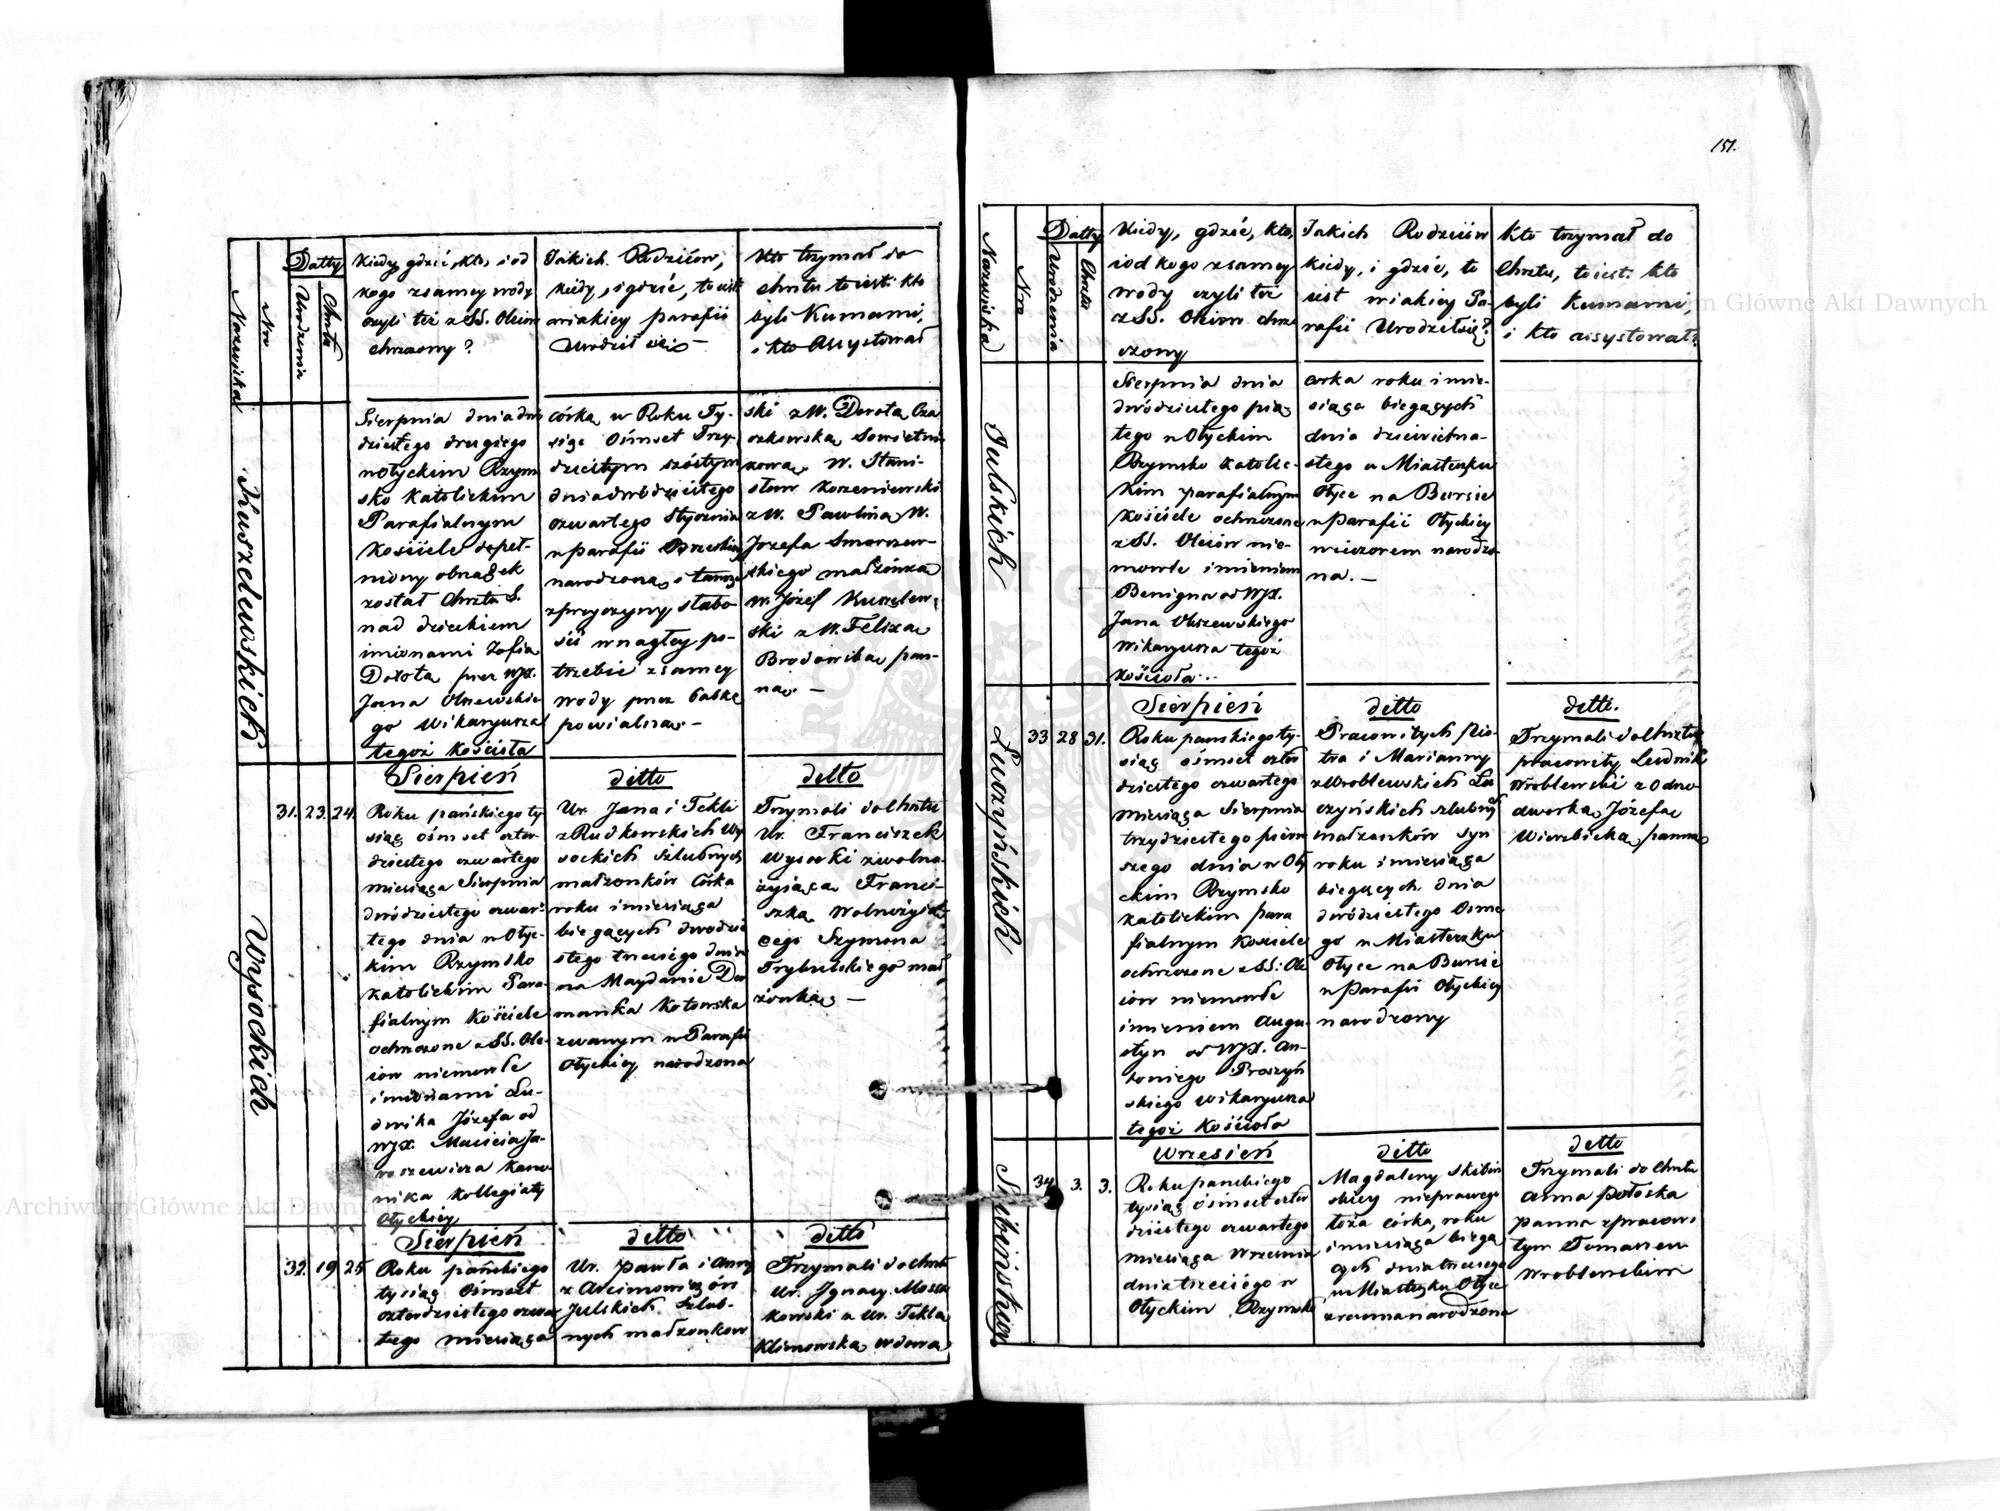 151.
Nazwiska
Nro
Datty
Urodzenia
Chrztu
Kiedy, gdzie, kto, i od
kogo z samey wody
czyli też z SS. Oleiow
chrzczony?
Jakich Rodziców,
kiedy, i gdzie, to iest
w iakiey parafii
Urodził się
Kto trzymał do
chrztu to iest: kto
byli Kumami,
i kto Assystował
Kuszelewskich
Sierpnia dnia dwu
dziestego drugiego
w Ołyckim Rzym
sko Katolickim
Parafialnym
Kościele dopeł-
niony obrządek
został Chrztu S.
nad dzieckiem
imionami Zofia
Dorota przez WJX.
Jana Olszewskie
go Wikaryusza
tegoż Kościoła
córka, w Roku Ty-
siąc Ośmset Trzy-
dziestym szóstym
dnia dwódziestego
czwartego Stycznia
w parafii
narodzona, i tamże
z przyczyny słabo-
ści w nagłey po-
trzebie z samey
wody przez babkę
powialna. —
ski z W. Dorotą Cza
czkowską Sowietni
kową, W. Stani-
sław Korzeniewski
z W. Pauliną W.
Józefa Smorczew-
skiego małżonką
W. Józef Kuszelew-
ski z W. Felixą
Brodowską pan-
ną. —
Wysockich
31. 23. 24.
Sierpień
Roku pańskiego ty
siąc ośmset czter
dziestego czwartego
miesiąca Sierpnia
dwódziestego czwar-
tego dnia w Ołyc-
kim Rzymsko
katolickim Para-
fialnym Kościele
ochrzczone z SS. Ole-
iow niemowle
imionami Lu-
dwika Józefa od
WJX. Macieia Ja-
roszewicza Kano-
nika Kollegiaty
Ołyckiey
ditto
Ur. Jana i Tekli
z Rudkowskich Wy
sockich Szlubnych
małżonków Córka
roku i miesiąca
biegących dwodzie
stego trzeciego dnia
na Maydanie Der
manka Kotowska
zwanym w Parafii
Ołyckiey narodzona
ditto
Trzymali do Chrztu
Ur. Franciszek
Wysocki z wolno
żyiącą Franci-
szką Wolnożyią
cego Szymona
Trybulskiego mał
żonką. —
32. 19 25.
Sierpień
Roku pańskiego
tysiąc Ośmset
czterdziestego czwar
tego miesiąca
ditto
Ur. Pawła i Anny
z Arcimowiczów
Julskich Szlub-
nych małżonków
ditto
Trzymali do chrztu
Ur. Ignacy Mosza
kowski z Ur. Teklą
Klimowską wdową
Nazwiska
Nro
Datty
Urodzenia
Chrztu
Kiedy, gdzie, kto,
i od kogo z samey
wody czyli też
z SS. Oleiow chrz
czony
Jakich Rodziców
kiedy, i gdzie, to
iest w iakiey Pa-
rafii Urodził się?
Kto trzymał do
Chrztu, to iest: kto
byli Kumami,
i kto assystował?
Julskich
Sierpnia dnia
dwódziestego pią
tego w Ołyckim
Rzymsko Katolic-
kim parafialnym
Kościele ochrzczone
z SS. Oleiów nie-
mowle imieniem
Benigna od WJX.
Jana Olszewskiego
Wikaryusza tegoż
Kościoła..
corka roku i mie-
siąca biegących
dnia dziewietna-
stego w Miasteczku
Ołyce na Bursie
w parafii Ołyckiey
wieczorem narodzo-
na. —
Łuczyńskich
33 28 31.
Sierpień
Roku panskiego ty-
siąc ośmset czter
dziestego czwartego
miesiąca Sierpnia
trzydziestego pierw
szego dnia w Oły
ckim Rzymsko
katolickim para
fialnym Kosciele
ochrzczone z SS: Ole
iow niemowle
imieniem Augu-
styn od WJX. An-
toniego Proszyń
skiego Wikaryusza
tegoż Kościoła
ditto
Pracowitych Pio-
tra i Marianny
z Wroblewskich Łu
czyńskich szlubnych
małżonków syn
roku i miesiąca
biegących dnia
dwódziestego Osme
go w Miasteczku
Ołyce na Bursie
w Parafii Ołyckiey
narodzony
ditto.
Trzymali do Chrztu
pracowity Ludwik
Wroblewski z Odno
dworką Józefą
Wierzbicką panną
Skibińskiey
34 3. 3.
Wrzesień
Roku panskiego
tysiąc Ośmset czter
dziestego czwartego
miesiąca Września
dnia trzeciego w
Ołyckim Rzymsko
ditto
Magdaleny Skibiń
skiey nieprawego
łoża córka, roku
i miesiąca biega
cych dnia trzeciego
w Miasteczku Ołyce
z rana narodzona
ditto
Trzymali do Chrztu
Anna Potocka
panna z pracowi
tym Tomaszem
Wroblewskim
Archiwum Główne Akt Dawnych
Archiwum Główne Akt Dawnych